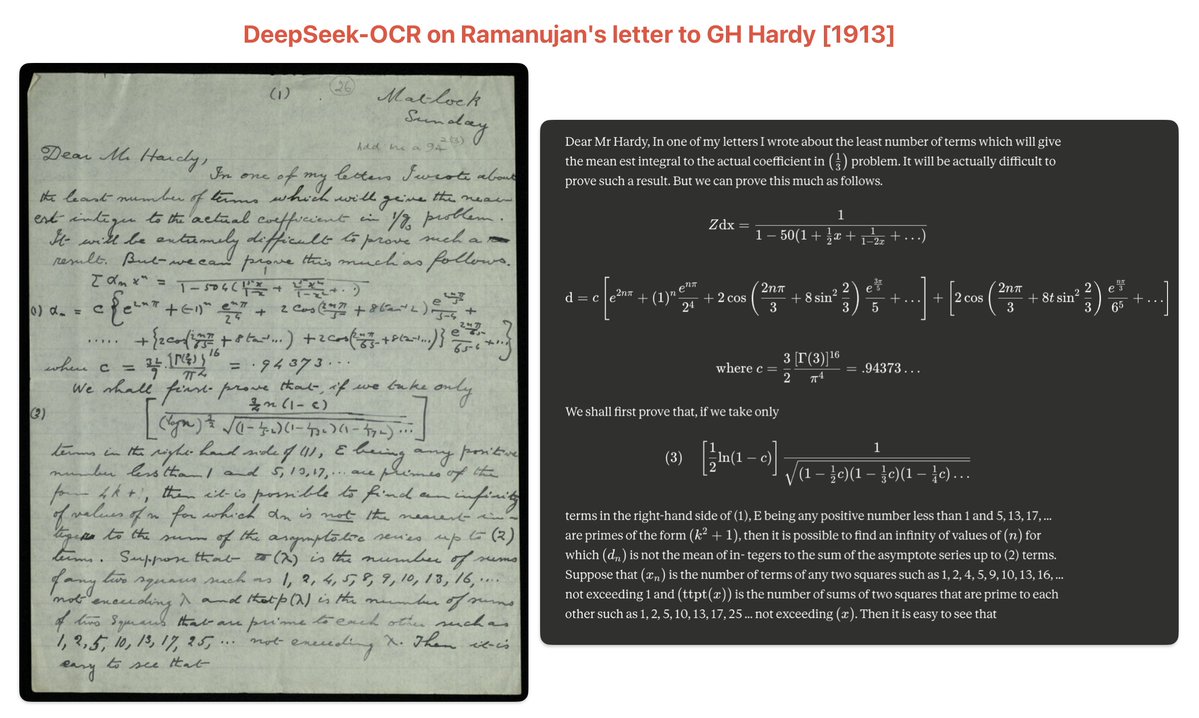 DeepSeek-OCR on Ramanujan's letter to GH Hardy [1913]
(1)
26
Matlock
Sunday
Dear Mr Hardy,
In one of my letters I wrote about
the least number of terms which will give the near-
est integer to the actual coefficient in 1/g3 problem.
It will be extremely difficult to prove such a
result. But we can prove this much as follows.
where c = = .94373...
We shall first prove that, if we take only
terms in the right hand side of (1), E being any positive
number less than 1 and 5, 13, 17, ... are primes of the
form 4k+1, then it is possible to find an infinity
of values of n for which dn is not the nearest in-
teger to the sum of the asymptotic series up to (2)
terms. Suppose that (λ) is the number of sums
of any two squares such as 1, 2, 4, 5, 8, 9, 10, 13, 16, ...
not exceeding λ and that p(λ) is the number of sums
of two squares that are prime to each other such as
1, 2, 5, 10, 13, 17, 25, ... not exceeding λ. Then it is
easy to see that
Dear Mr Hardy, In one of my letters I wrote about the least number of terms which will give
the mean est integral to the actual coefficient in (1/3) problem. It will be actually difficult to
prove such a result. But we can prove this much as follows.
Zdx = 1 / (1 − 50(1 + 1/2 x + 1/(1−2x) + ...))
d = c [e^{2nπ} + (1)^n e^{nπ}/2^4 + 2 cos (2nπ/3 + 8 sin² 2/3) e^{3π/5}/5 + ...] + [2 cos (2nπ/3 + 8t sin² 2/3) e^{nπ/3}/6^5 + ...]
where c = 3/2 [Γ(3)]^16/π^4 = .94373...
We shall first prove that, if we take only
(3) [1/2 ln(1 − c)] 1/√((1 − 1/2 c)(1 − 1/3 c)(1 − 1/4 c)...)
terms in the right-hand side of (1), E being any positive number less than 1 and 5, 13, 17, ...
are primes of the form (k² + 1), then it is possible to find an infinity of values of (n) for
which (dₙ) is not the mean of in- tegers to the sum of the asymptote series up to (2) terms.
Suppose that (xₙ) is the number of terms of any two squares such as 1, 2, 4, 5, 9, 10, 13, 16, ...
not exceeding 1 and (ttpt(x)) is the number of sums of two squares that are prime to each
other such as 1, 2, 5, 10, 13, 17, 25 ... not exceeding (x). Then it is easy to see that